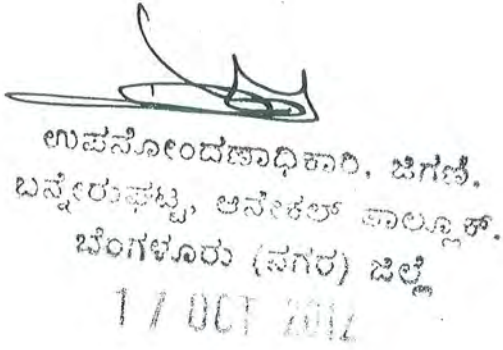 ಉಪನೋಂದಣಾಧಿಕಾರಿ, ಜಿಗಣಿ.
ಬನ್ನೇರುಘಟ್ಟ, ಆನೇಕಲ್ ತಾಲ್ಲೂಕ್.
ಬೆಂಗಳೂರು (ನಗರ) ಜಿಲ್ಲೆ
17 OCT 2012